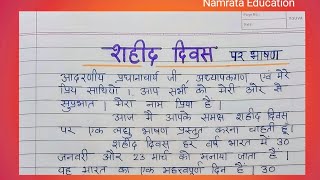 Namrata Education
शहीद दिवस पर भाषण
आदरणीय प्रधानाचार्य जी, अध्यापकगण एवं मेरे
प्रिय साथियों। आप सभी को मेरी ओर से
सुप्रभात। मेरा नाम प्रिया है।
आज मैं आपके समक्ष शहीद दिवस
पर एक लघु भाषण प्रस्तुत करना चाहती हूँ।
शहीद दिवस हर वर्ष भारत में 30
जनवरी और 23 मार्च को मनाया जाता है।
यह भारत का एक महत्वपूर्ण दिन है। 30